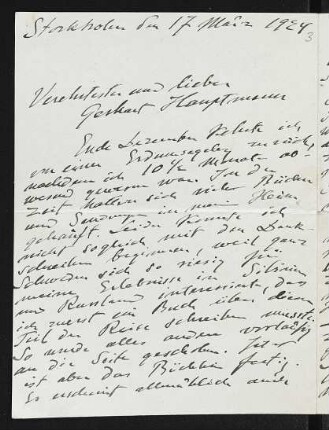 Stockholm den 17. März 1924
3
Verehrtester und lieber
Gerhart Hauptmann
Ende Dezember kehrte ich
von einer Erdumsegelung zurück,
nachdem ich 10 1/2 Monate ab-
wesend gewesen war. In der
Zeit hatten sich viele Bücher
und Sendungen in mein Heim
gehäuft. Leider konnte ich
nicht sogleich mit den Dank-
schreiben beginnen, weil ganz
Schweden sich so riesig für
meine Erlebnisse in Sibirien
und Russland interessirt, das
ich zuerst ein Buch über diesen
Teil der Reise schreiben musste.
So wurde alles andere vorläufig
an die Seite geschoben. Jetzt
ist aber das Büchlein fertig.
Es erscheint allmählich auch